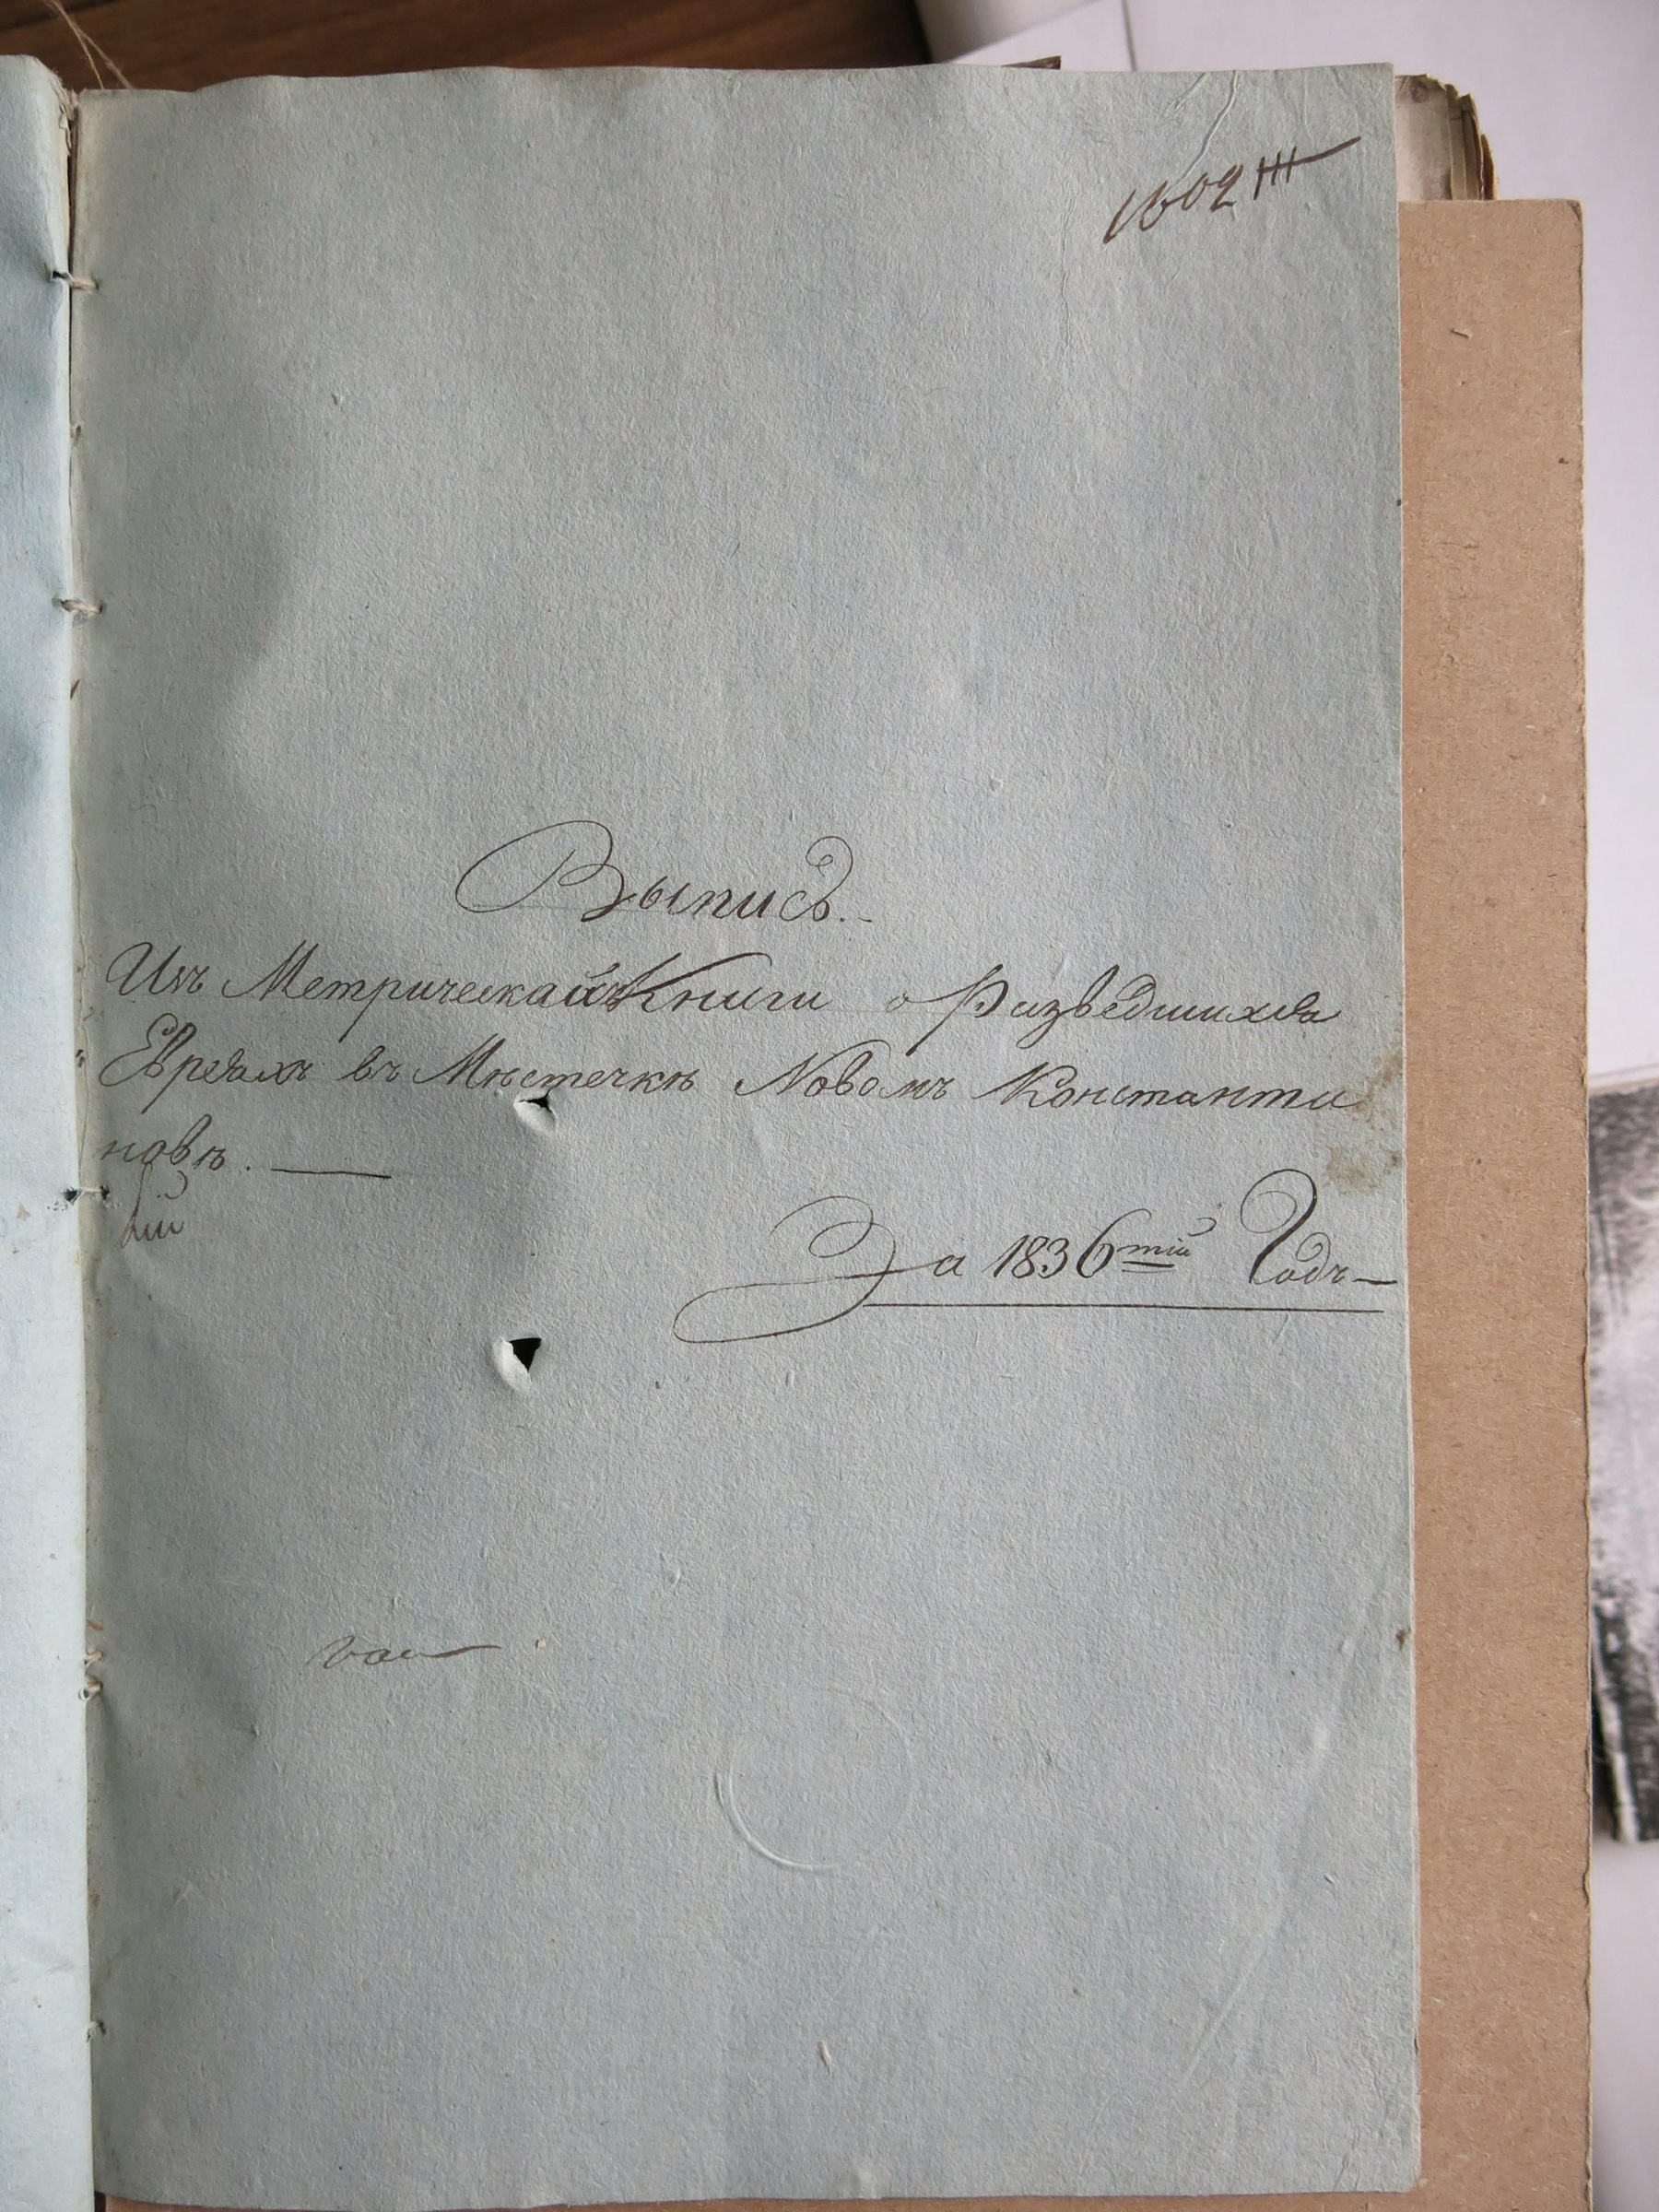 1602
Выпись.
Изъ Метрической Книги о Разведшихся
Евреяхъ въ Мѣстечкѣ Новомъ Константи
новѣ. —
За 1836тій Годъ —